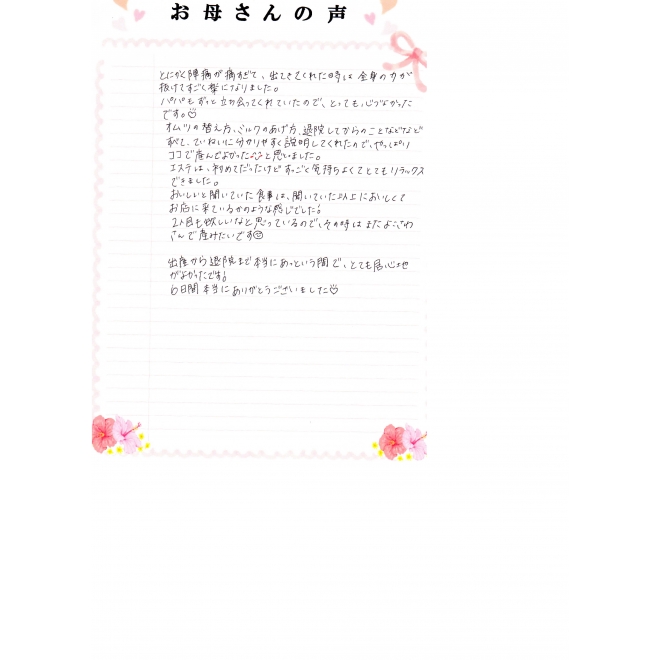 お母さんの声
とにかく陣痛が痛すぎて、出てきてくれた時は全身の力が
抜けてすごく楽になりました。
パパもずっと立ち会ってくれていたので、とっても心づよかった
です。
オムツの替え方、ミルクのあげ方、退院してからのことなどなど
すべて、ていねいに分かりやすく説明してくれたので、やっぱり
ココで産んでよかった♡と思いました。
エステは、初めてだったけどすっごく気持ちよくてとてもリラックス
できました。
おいしいと聞いていた食事は、聞いていた以上においしくて
お店に来ているかのような感じでした!
2人目も欲しいなと思っているので、その時はまたよこざわ
さんで産みたいです
出産から退院まで本当にあっという間で、とても居心地
がよかったです!
6日間本当にありがとうございました♡